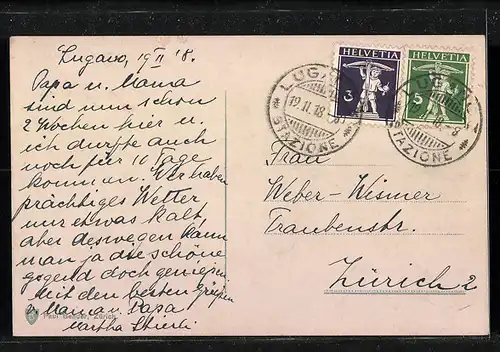 Lugano, 19 II 18.
Papa u. Mama
sind nun schon
2 Wochen hier u.
ich durfte auch
noch für 10 Tage
kommen. Wir haben
prächtiges Wetter
nur etwas kalt,
aber deswegen kann
man ja die schöne
gegend doch geniessen.
Mit den besten Grüssen
v. Mama u. Papa
Martha
Paul Bender, Zürich
HELVETIA
3
HELVETIA
5
LUGANO
19.II.18
STAZIONE
LUGANO
STAZIONE
Frau
Weber-Wismer
Traubenstr.
Zürich 2